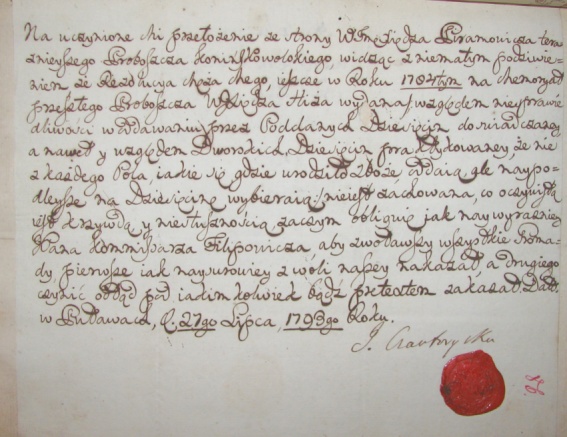 Na uczynione Mi przełożenie ze strony WJmć Xiędza Piramowicza tera
znieyszego Proboszcza Końskowolskiego, widząc z niemałym podziwie-
niem że Rezolucya ieszcze w Roku 1784tym na Memoryał
przeszłego Proboszcza WXiędza wydana, względem niesprawie
dliwości w oddawaniu przez Poddanych Dziesięcin doświadczaney
a nawet y względem Dworskich Dziesięcin praktykowaney, że nie
z każdego Pola, iakie się gdzie urodziło Zboże, oddaią, ale naypo-
dleysze na Dziesięcinę wybieraią, nieiest zachowana, co oczywistą
iest krzywdą y niesłusznością, zaczym obliguię jak naywyrazniey
Pana Kommissarza Filipowicza, aby zwoławszy wszystkie Groma-
dy, pierwsze iak naysurowiey z woli naszey nakazał, a drugiego
czynić odtąd pod iakimkolwiek bądź pretextem zakazał. Datt.
w Puławach, d. 27go Lipca, 1793go Roku.
J. Czartoryska